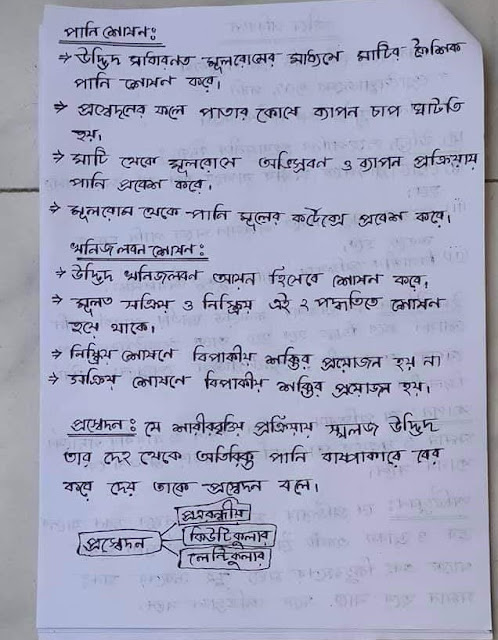 পানি শোষন:
→ উদ্ভিদ সাধারনত মূলরোমের মাধ্যমে মাটির কৈশিক
পানি শোষন করে।
→ প্রস্বেদনের ফলে পাতার কোষে ব্যাপন চাপ ঘাটতি
হয়।
→ মাটি থেকে মূলরোমে অভিস্রবন ও ব্যাপন প্রক্রিয়ায়
পানি প্রবেশ করে।
→ মূলরোম থেকে পানি মূলের কর্টেক্সে প্রবেশ করে।
খনিজ লবন শোষন:
→ উদ্ভিদ খনিজলবন আয়ন হিসেবে শোষন করে।
→ মূলত সক্রিয় ও নিষ্ক্রিয় এই ২ পদ্ধতিতে শোষন
হয়ে থাকে।
→ নিষ্ক্রিয় শোষণে বিপাকীয় শক্তির প্রয়োজন হয় না
→ সক্রিয় শোষণে বিপাকীয় শক্তির প্রয়োজন হয়।
প্রস্বেদন: যে শারীরবৃত্তিয় প্রক্রিয়ায় স্থলজ উদ্ভিদ
তার দেহ থেকে অতিরিক্ত পানি বাষ্পাকারে বের
করে দেয় তাকে প্রস্বেদন বলে।
পত্ররন্ধ্রীয়
প্রস্বেদন কিউটিকুলার
লেন্টিকুলার